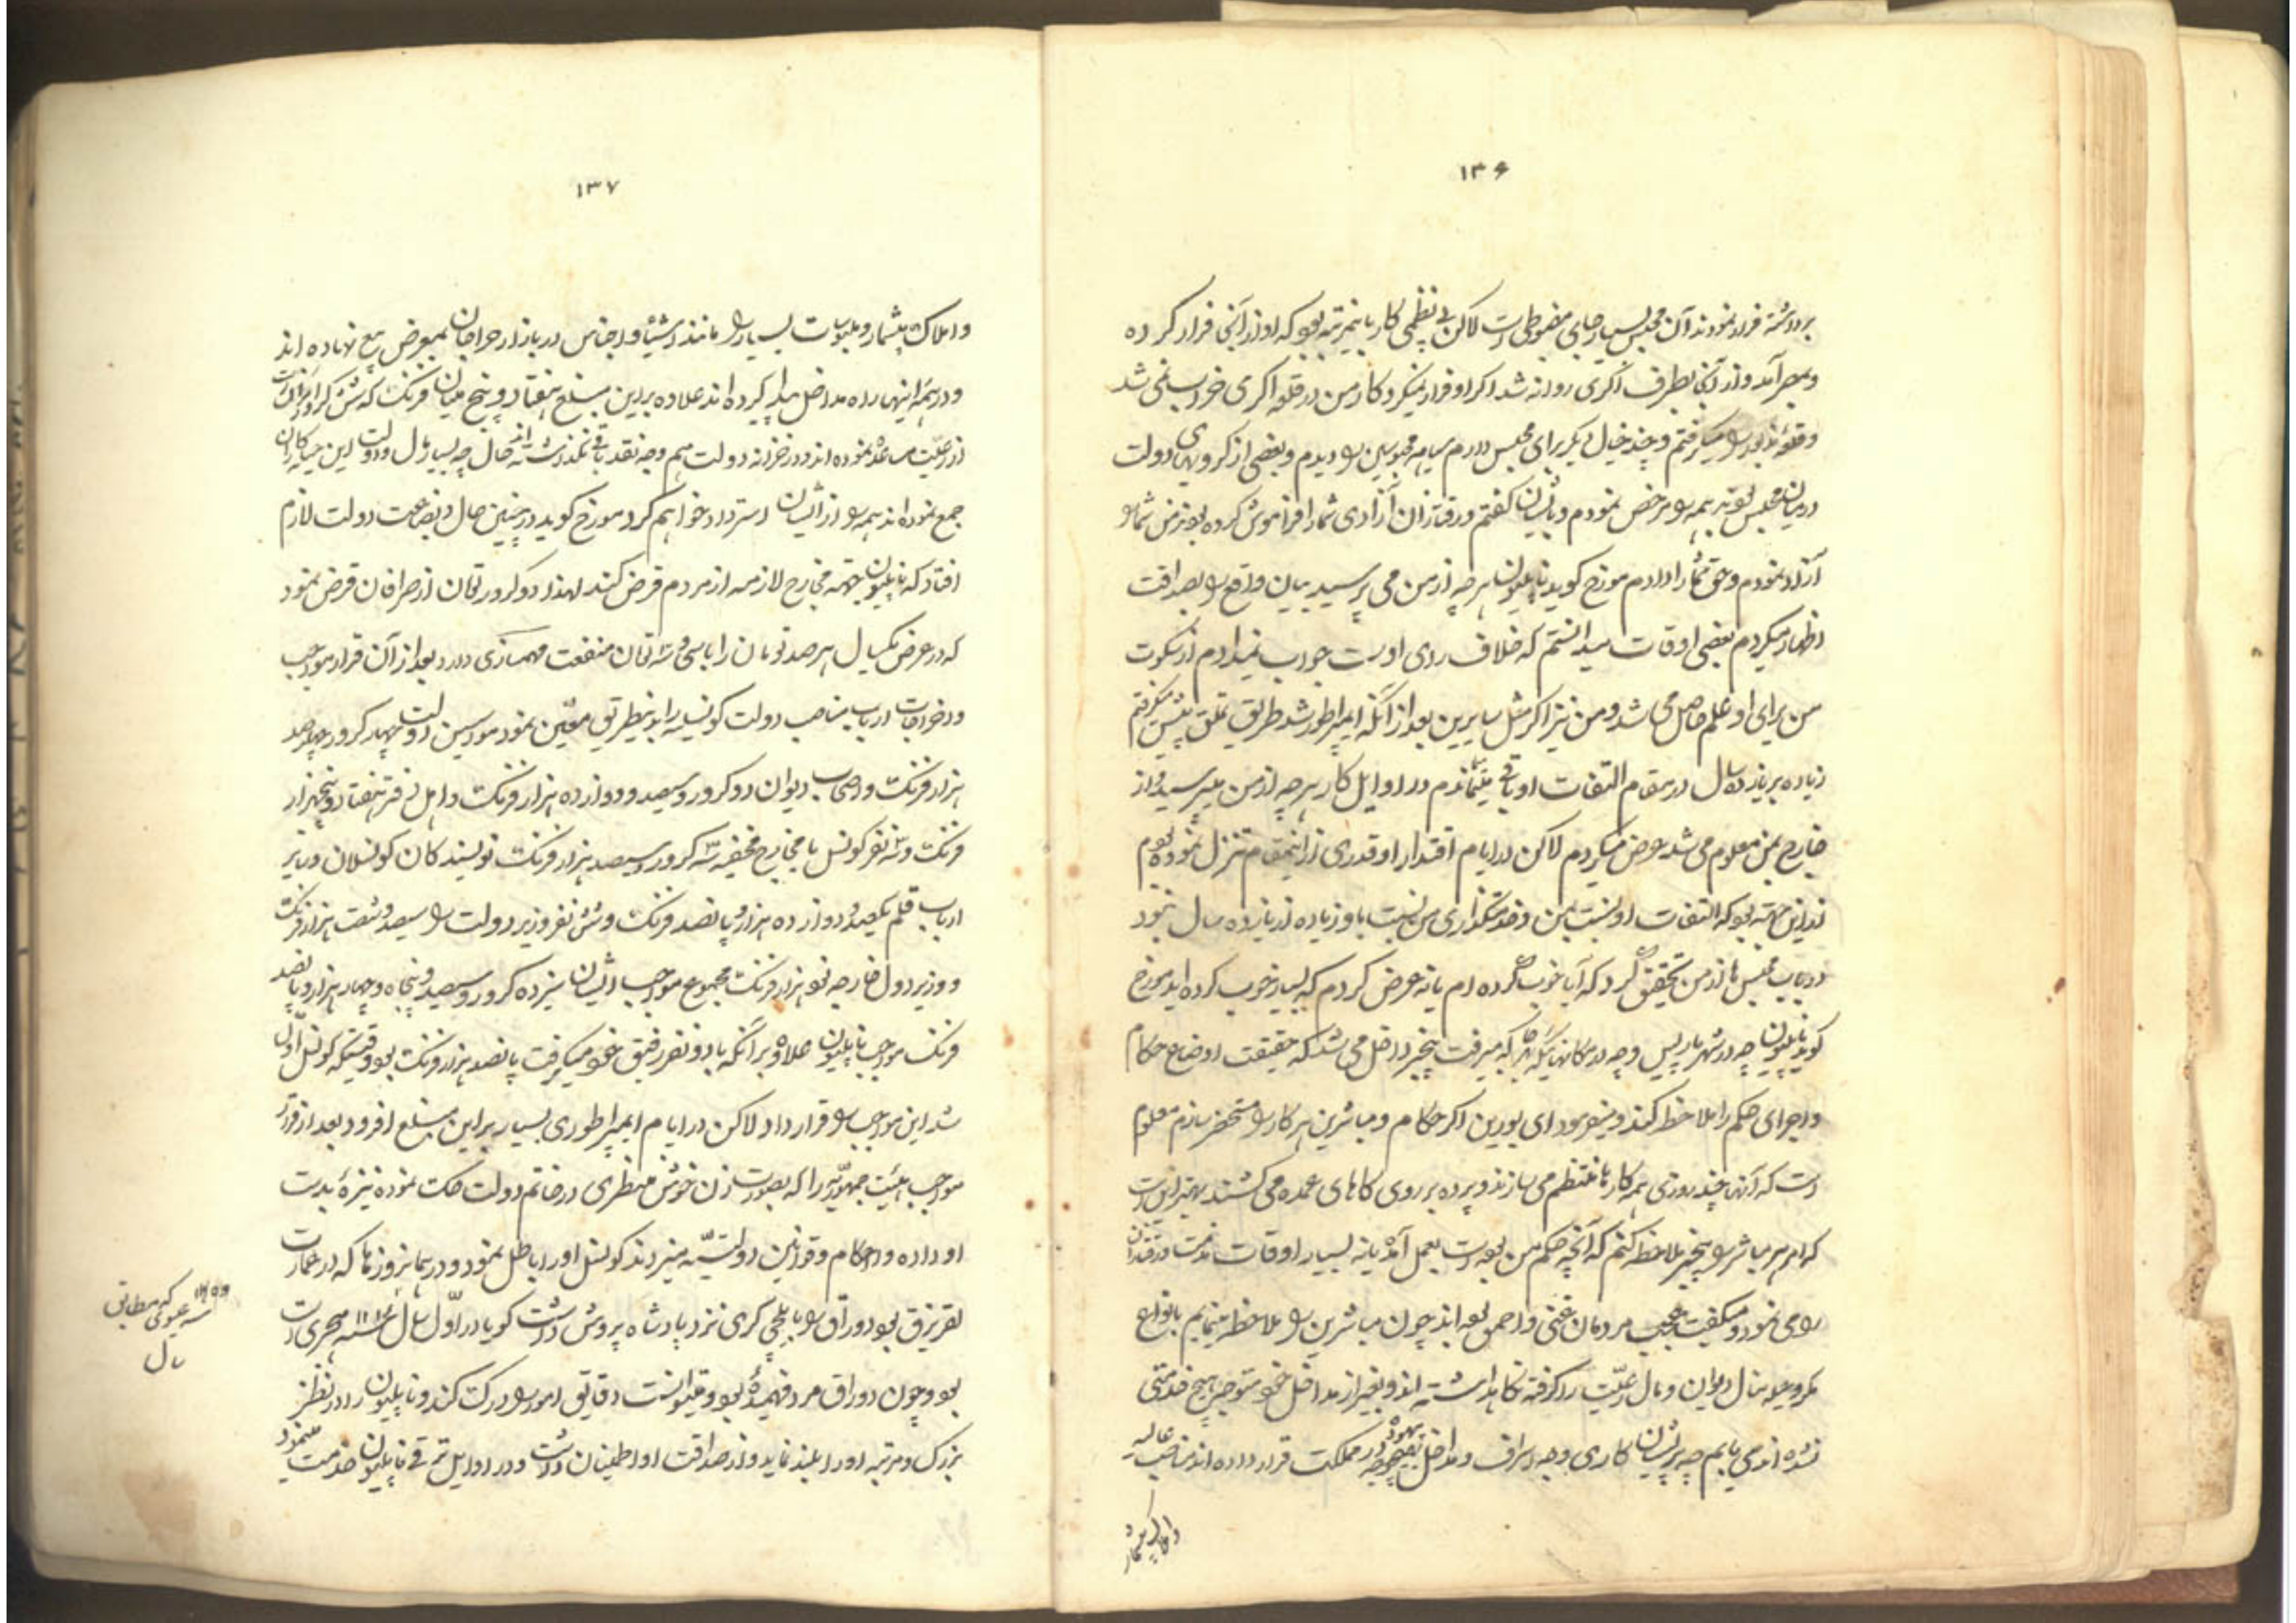 ۱۳۶
برداشته فرار نمودند آن محبس بسیار جای مضبوطی است لاکن بی نظمی کار باینمرتبه بود که او از آنجا فرار کرده
و بمصر آمد و از آنجا بطرف اگری روانه شد اگر او فرار نمیکرد کار من در قلعه اگری خراب نمی شد
و قلعه مذبور را میگرفتم و چند خیال دیگر برای محبس دارم سیاهه محبوسین را دیدم و بعضی از گروهای دولت
در میان محبس بودند همه را مرخص نمودم و بایشان گفتم درقتران آزادی شما را فراموش کرده بودند من شما را
آزاد نمودم و حق شما را دادم مورخ گوید ناپلیون هر چه از من می پرسید بیان واقع را بصداقت
اظهار میکردم بعضی اوقات میدانستم که خلاف رای اوست جواب نمیدادم از سکوت
من برای او علم حاصل می شد و من نیز اگر مثل سایرین بعد از آنکه ایمپراطور شد طریق تملق پیش میگرفتم
زیاده بر یازده سال در مقام التفات او باقی میماندم در اوایل کار هر چه از من میپرسید و از
خارج بمن معلوم می شد عرض میکردم لاکن در ایام اقتدار او قدری از اینمقام تنزل نموده بودم
از این جهته بود که التفات او نسبت بمن و خدمتگذاری من نسبت باو زیاده از یازده سال نبود
در باب محبس ها از من تحقیق کرد که آیا خوب کرده ام یا نه عرض کردم که بسیار خوب کرده اید مورخ
گوید ناپلیون چه در شهر پاریس و چه در مکانهائیکه که میرفت بیخبر داخل می شد که حقیقت اوضاع حکام
و اجرای حکم را ملاحظه کند و میفرمود ای بورین اگر حکام و مباشرین هر کار را مستحضر سازم معلوم
است که آنها چند روزی همه کارها منتظم می سازند و پرده بر روی کارهای عمده می کشند بهتر این است
که امر هر مباشر را بیخبر ملاحظه کنم که آنچه حکم من بوده است بعمل آمده یا نه بسیار اوقات
را می فرمود و میگفت عجب مردمان غبی و احمق بوده اند چون مباشرین را ملاحظه مینمایم بانواع
مکر و حیله مال دیوان و مال رعیت را گرفته نگاهداشته اند و بغیر از مداخل خود متوجه هیچ خدمتی
نشده اند می یابم چه پریشان کاری و چه اسراف و مداخل بیهوده در مملکت قرار داده اند مناصب عالیه
و املاک بیشمار
۱۳۷
و املاک بیشمار و ملبوسات بسیار را مانند اشیاء و اجناس در بازار حراجان بمعرض بیع نهاده اند
و در همه اینها راه مداخل پیدا کرده اند علاوه بر این مبلغ هفتاد و پنج میلیان فرنک که شش کرور تومان است
از رعیت مساعده نموده اند و در خزانه دولت هم وجه نقد باقی نگذاشته اند حال چه بسیار مال و دولت این حیله کاران
جمع نموده اند همه را از ایشان استرداد خواهم کرد مورخ گوید در چنین حال و بضاعت دولت لازم
افتاد که ناپلیون جهته مخارج لازمه از مردم قرض کند لهذا دو کرور تومان از صرافان قرض نمود
که در عرض یکسال هر صد تومان را با سی و سه تومان منفعت مهمسازی دارد بعد از آن قرار مواجب
و اخراجات ارباب مناصب دولت کونسلیه را باینطریق معین نمود موسسین دولت چهار کرور و چهارصد
هزار فرنک و اصحاب دیوان دو کرور و سیصد و دوازده هزار فرنک و اهل دفتر هفتاد و پنجهزار
فرنک و سه نفر کونسل با مخارج مخفیه سه کرور و سیصد هزار فرنک نویسندکان کونسلان و سایر
ارباب قلم یکصد و دوازده هزار و پانصد فرنک و شش نفر وزیر دولت را سیصد و شصت هزار فرنک
و وزیر دول خارجه نود هزار فرنک مجموع مواجب ایشان سیزده کرور و سیصد و پنجاه و چهار هزار و پانصد
فرنک مواجب ناپلیون علاوه بر آنکه با دو نفر رفیق خود میگرفت پانصد هزار فرنک بود وقتیکه کونسل اول
شد این مواجب را قرار داد لاکن در ایام ایمپراطوری بسیار بر این مبلغ افزود بعد از قرار
مواجب هیئت جمهوریه را که بصورت زن خوش منظری در خاتم دولت حک نموده نیزهٔ بدست
او داده و احکام و قوانین دولتیه میزدند کونسل اورا باطل نمود و در همان روزها که در عمارت
لقزنرق بود دوراق را بایلچی گری نزد پادشاه پروش داشت گویا در اول سال ۱۲۱۴ سنه هجری است
بود و چون دوراق مرد فهمیدهٔ بود و میتوانست دقایق امور را درک کند و ناپلیون را در نظرها
بزرک و مرتبه اورا بلند نماید و از صداقت او اطمینان داشت و در اوایل ترقی ناپلیون خدمت مینمود
سنه عیسوی که مطابق
سال